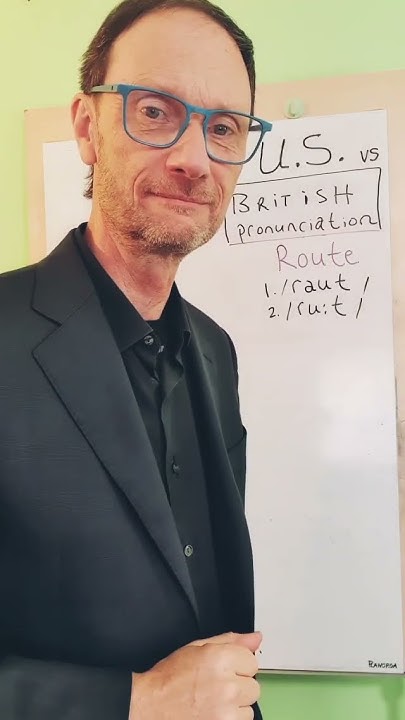 U.S. vs
BRiTiSH
pronunciation
Route
1. /raut/
2. /ru:t/
PANORGA